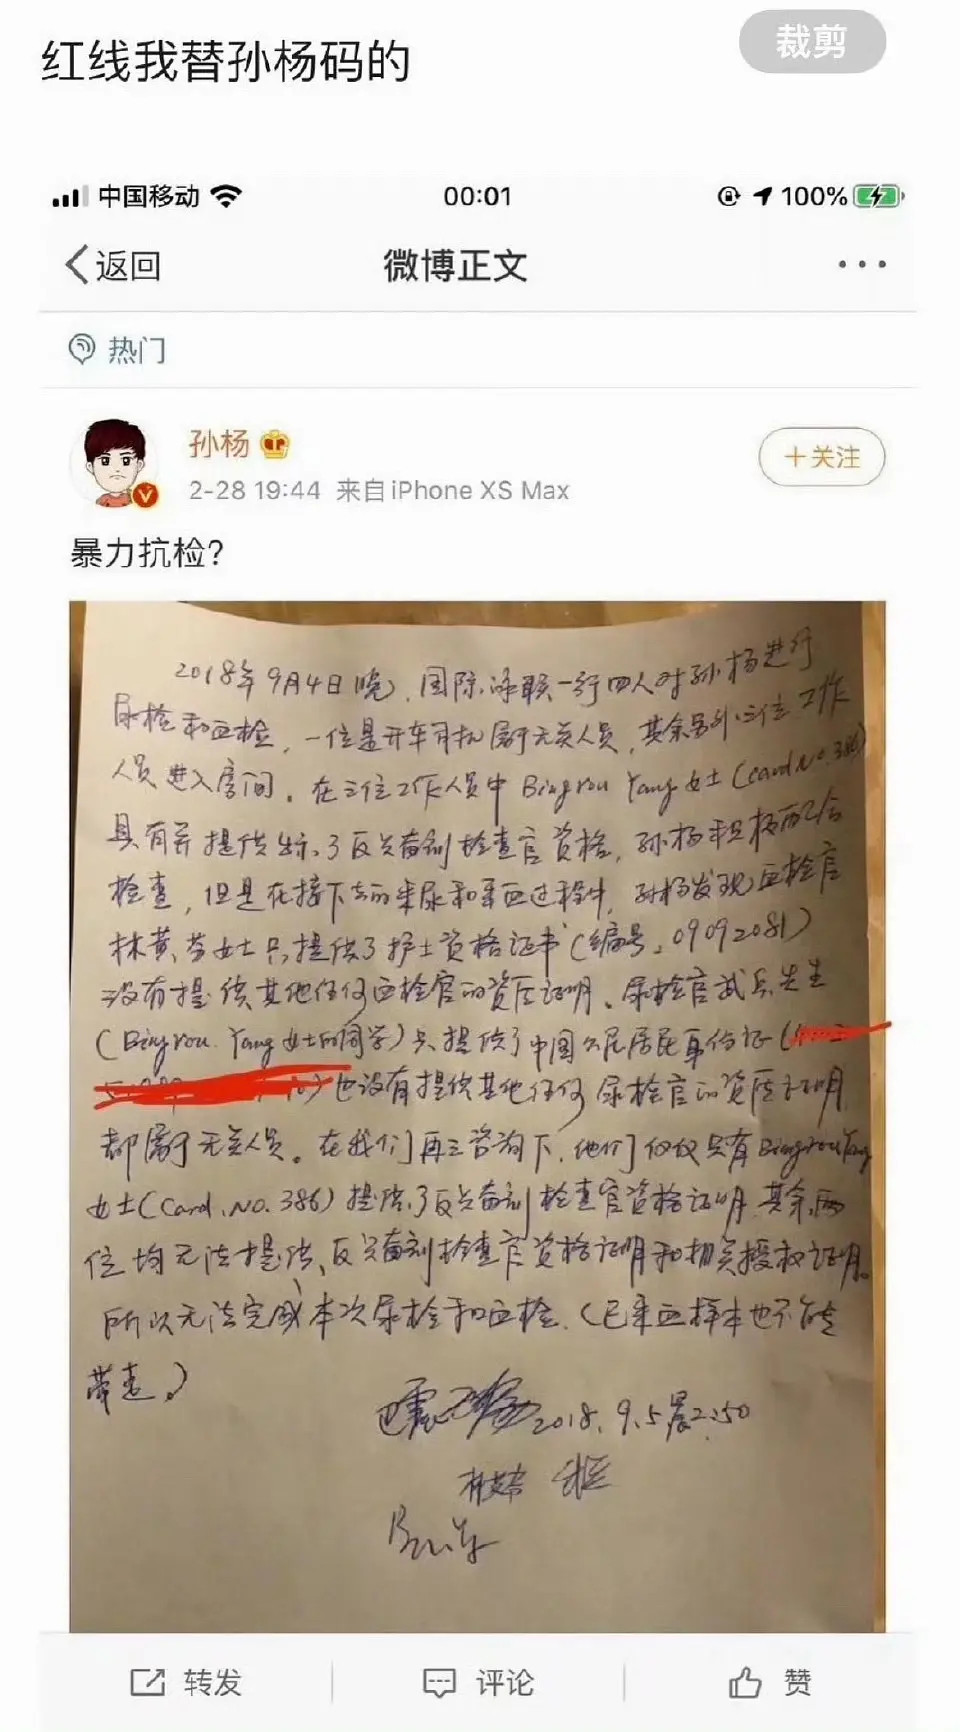 红线我替孙杨码的
裁剪
中国移动
00:01
100%
返回
微博正文
热门
孙杨
+关注
2-28 19:44 来自iPhone XS Max
暴力抗检?
2018年9月4日晚，国际泳联一行四人对孙杨进行
尿检和血检，一位是开车司机属于无关人员，其余另外三位工作
人员进入房间。在三位工作人员中 Bingrou Yang 女士(card No. 386)
具有并提供出示了反兴奋剂检查官资格，孙杨积极配合
检查，但是在接下去的采尿和采血过程中，孙杨发现血检官
林 女士只提供了护士资格证书(编号：09092081)
没有提供其他任何血检官的资质证明、尿检官 先生
(Bingrou Yang 女士的同学)只提供了中国公民居民身份证(
)也没有提供其他任何尿检官的资质证明
都属于无关人员。在我们再三咨询下，他们仅仅只有Bingrou Yang
女士(Card. No. 386)提供了反兴奋剂检查官资格证明，其余两
位均无法提供反兴奋剂检查官资格证明和相关授权证明。
所以无法完成本次尿检和血检.(已采血样本也不能
带走。)
巴震 2018.9.5晨2:50
转发
评论
赞